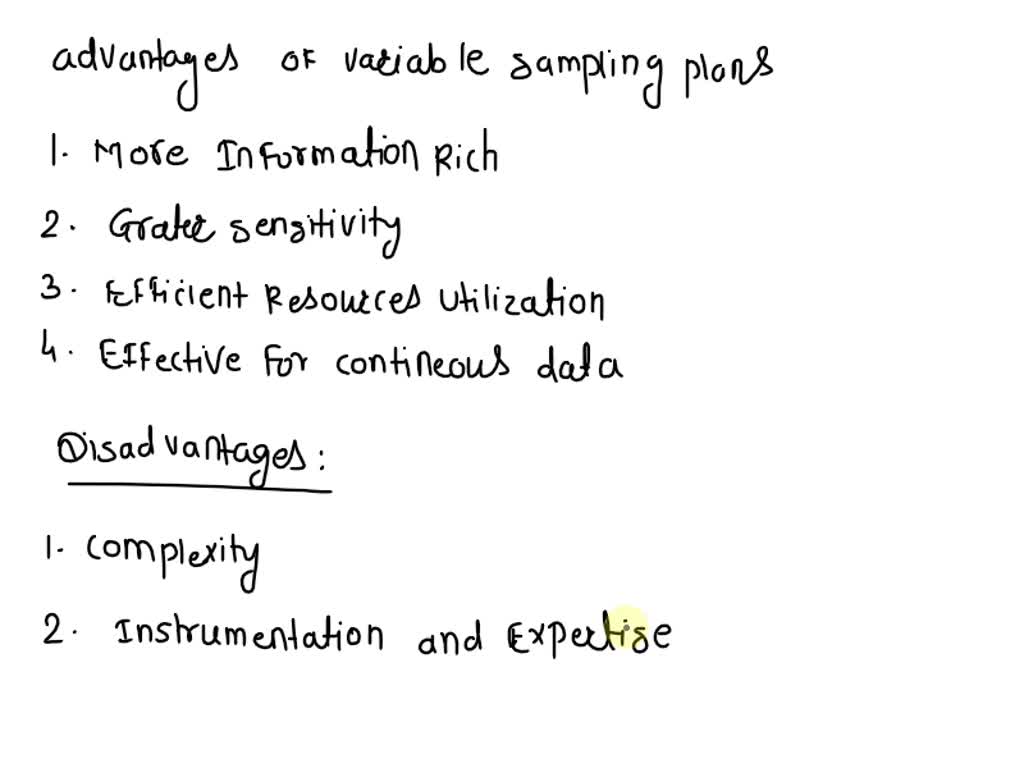 advantages of variable sampling plans
1. More Information Rich
2. Grater sensitivity
3. Efficient Resources utilization
4. Effective For contineous data
Disadvantages:
1. complexity
2. Instrumentation and Expertise